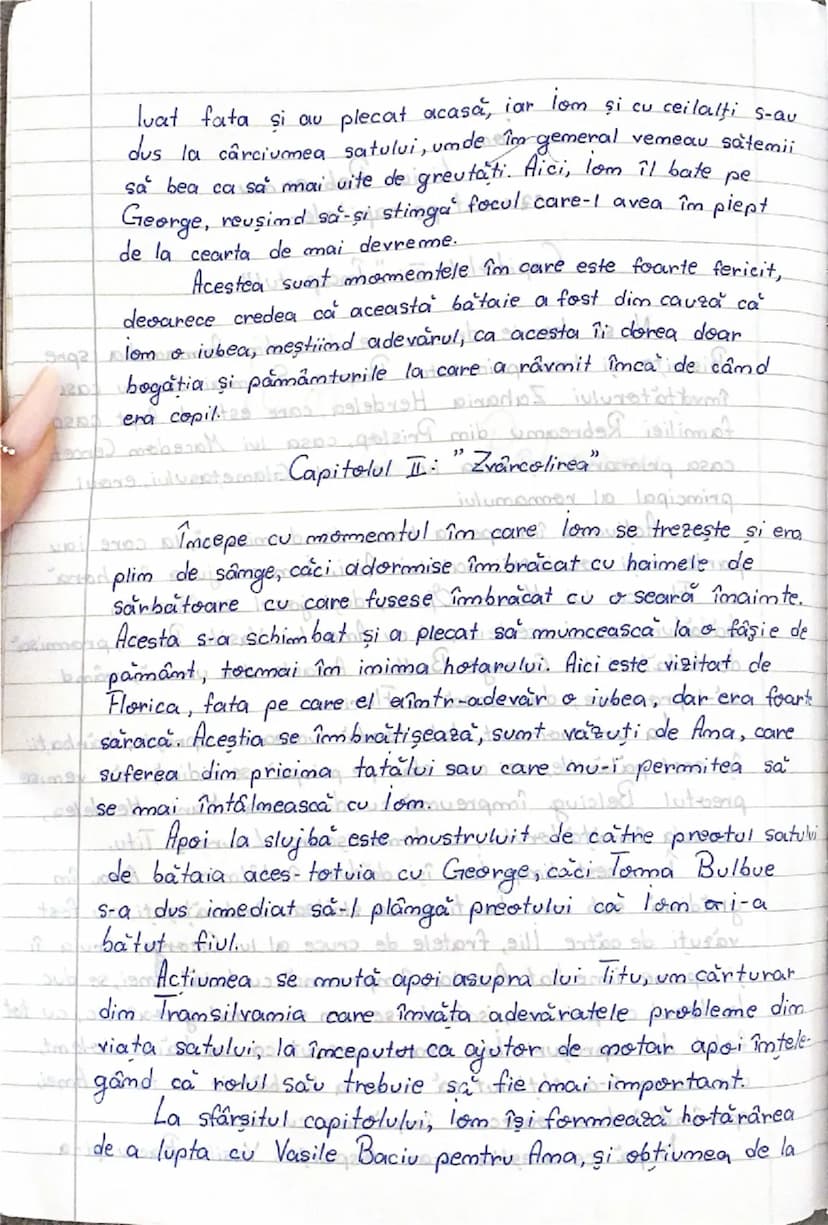 luat fata și au plecat acasă, iar Ion și cu ceilalți s-au
dus la cârciumea satului, unde în general veneau sătenii
să bea ca să mai uite de greutăți. Aici, Ion îl bate pe
George, reușind să-și stingă focul care-l avea în piept
de la cearta de mai devreme.
Acestea sunt momentele în care este foarte fericit,
deoarece credea că această bătaie a fost din cauză că
Ion o iubea, neștiind adevărul, ca acesta îi dorea doar
bogăția și pământurile la care a râvnit încă de când
era copil.
Capitolul II: "Zvârcolirea"
Începe cu momentul în care Ion se trezește și era
plin de sânge, căci adormise îmbrăcat cu hainele de
sărbătoare cu care fusese îmbrăcat cu o seară înainte.
Acesta s-a schimbat și a plecat să muncească la o fâșie de
pământ, tocmai în inima hotarului. Aici este vizitat de
Florica, fata pe care el într-adevăr o iubea, dar era foarte
săracă. Aceștia se îmbrățișează, sunt văzuți de Ana, care
suferea din pricina tatălui sau care nu-i permitea să
se mai întâlnească cu Ion.
Apoi la slujbă este mustruluit de către preotul satului
de bătaia aces-totuia cu George, căci Toma Bulbuc
s-a dus imediat să-l plângă preotului că Ion i-a
bătut fiul.
Acțiunea se mută apoi asupra lui Titu, un cărturar
din Transilvania care învăța adevăratele probleme din
viața satului, la început ca ajutor de notar apoi înțele-
gând că rolul său trebuie să fie mai important.
La sfârșitul capitolului, Ion își formează hotărârea
de a lupta cu Vasile Baciu pentru Ana, și obțiunea de la